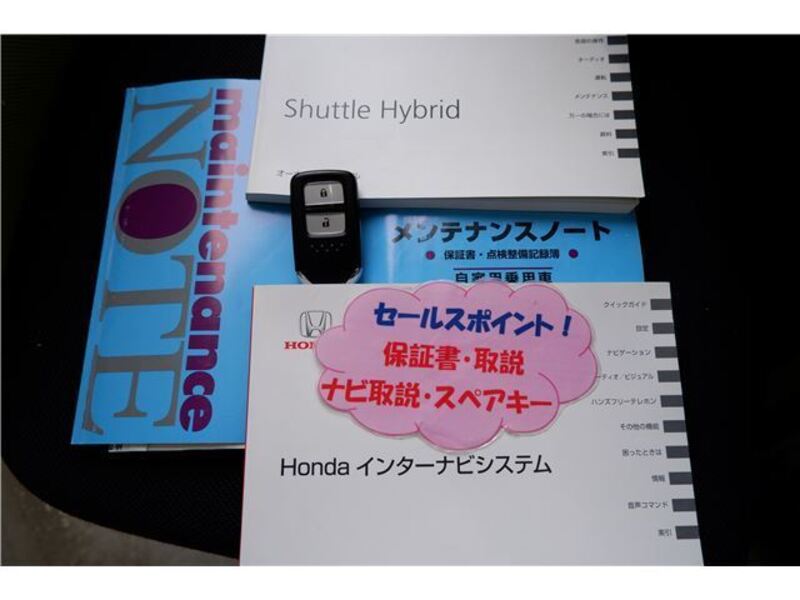 Shuttle Hybrid
オーディオ
運転
メンテナンス
万一の場合には
資料
索引
maintenance
NOTE
メンテナンスノート
● 保証書・点検整備記録簿 ●
自家用乗用車
セールスポイント！
保証書・取説
ナビ取説・スペアキー
Honda インターナビシステム
クイックガイド
設定
ナビゲーション
ーディオ/ビジュアル
ハンズフリーテレホン
その他の機能
困ったときは
情報
音声コマンド
索引